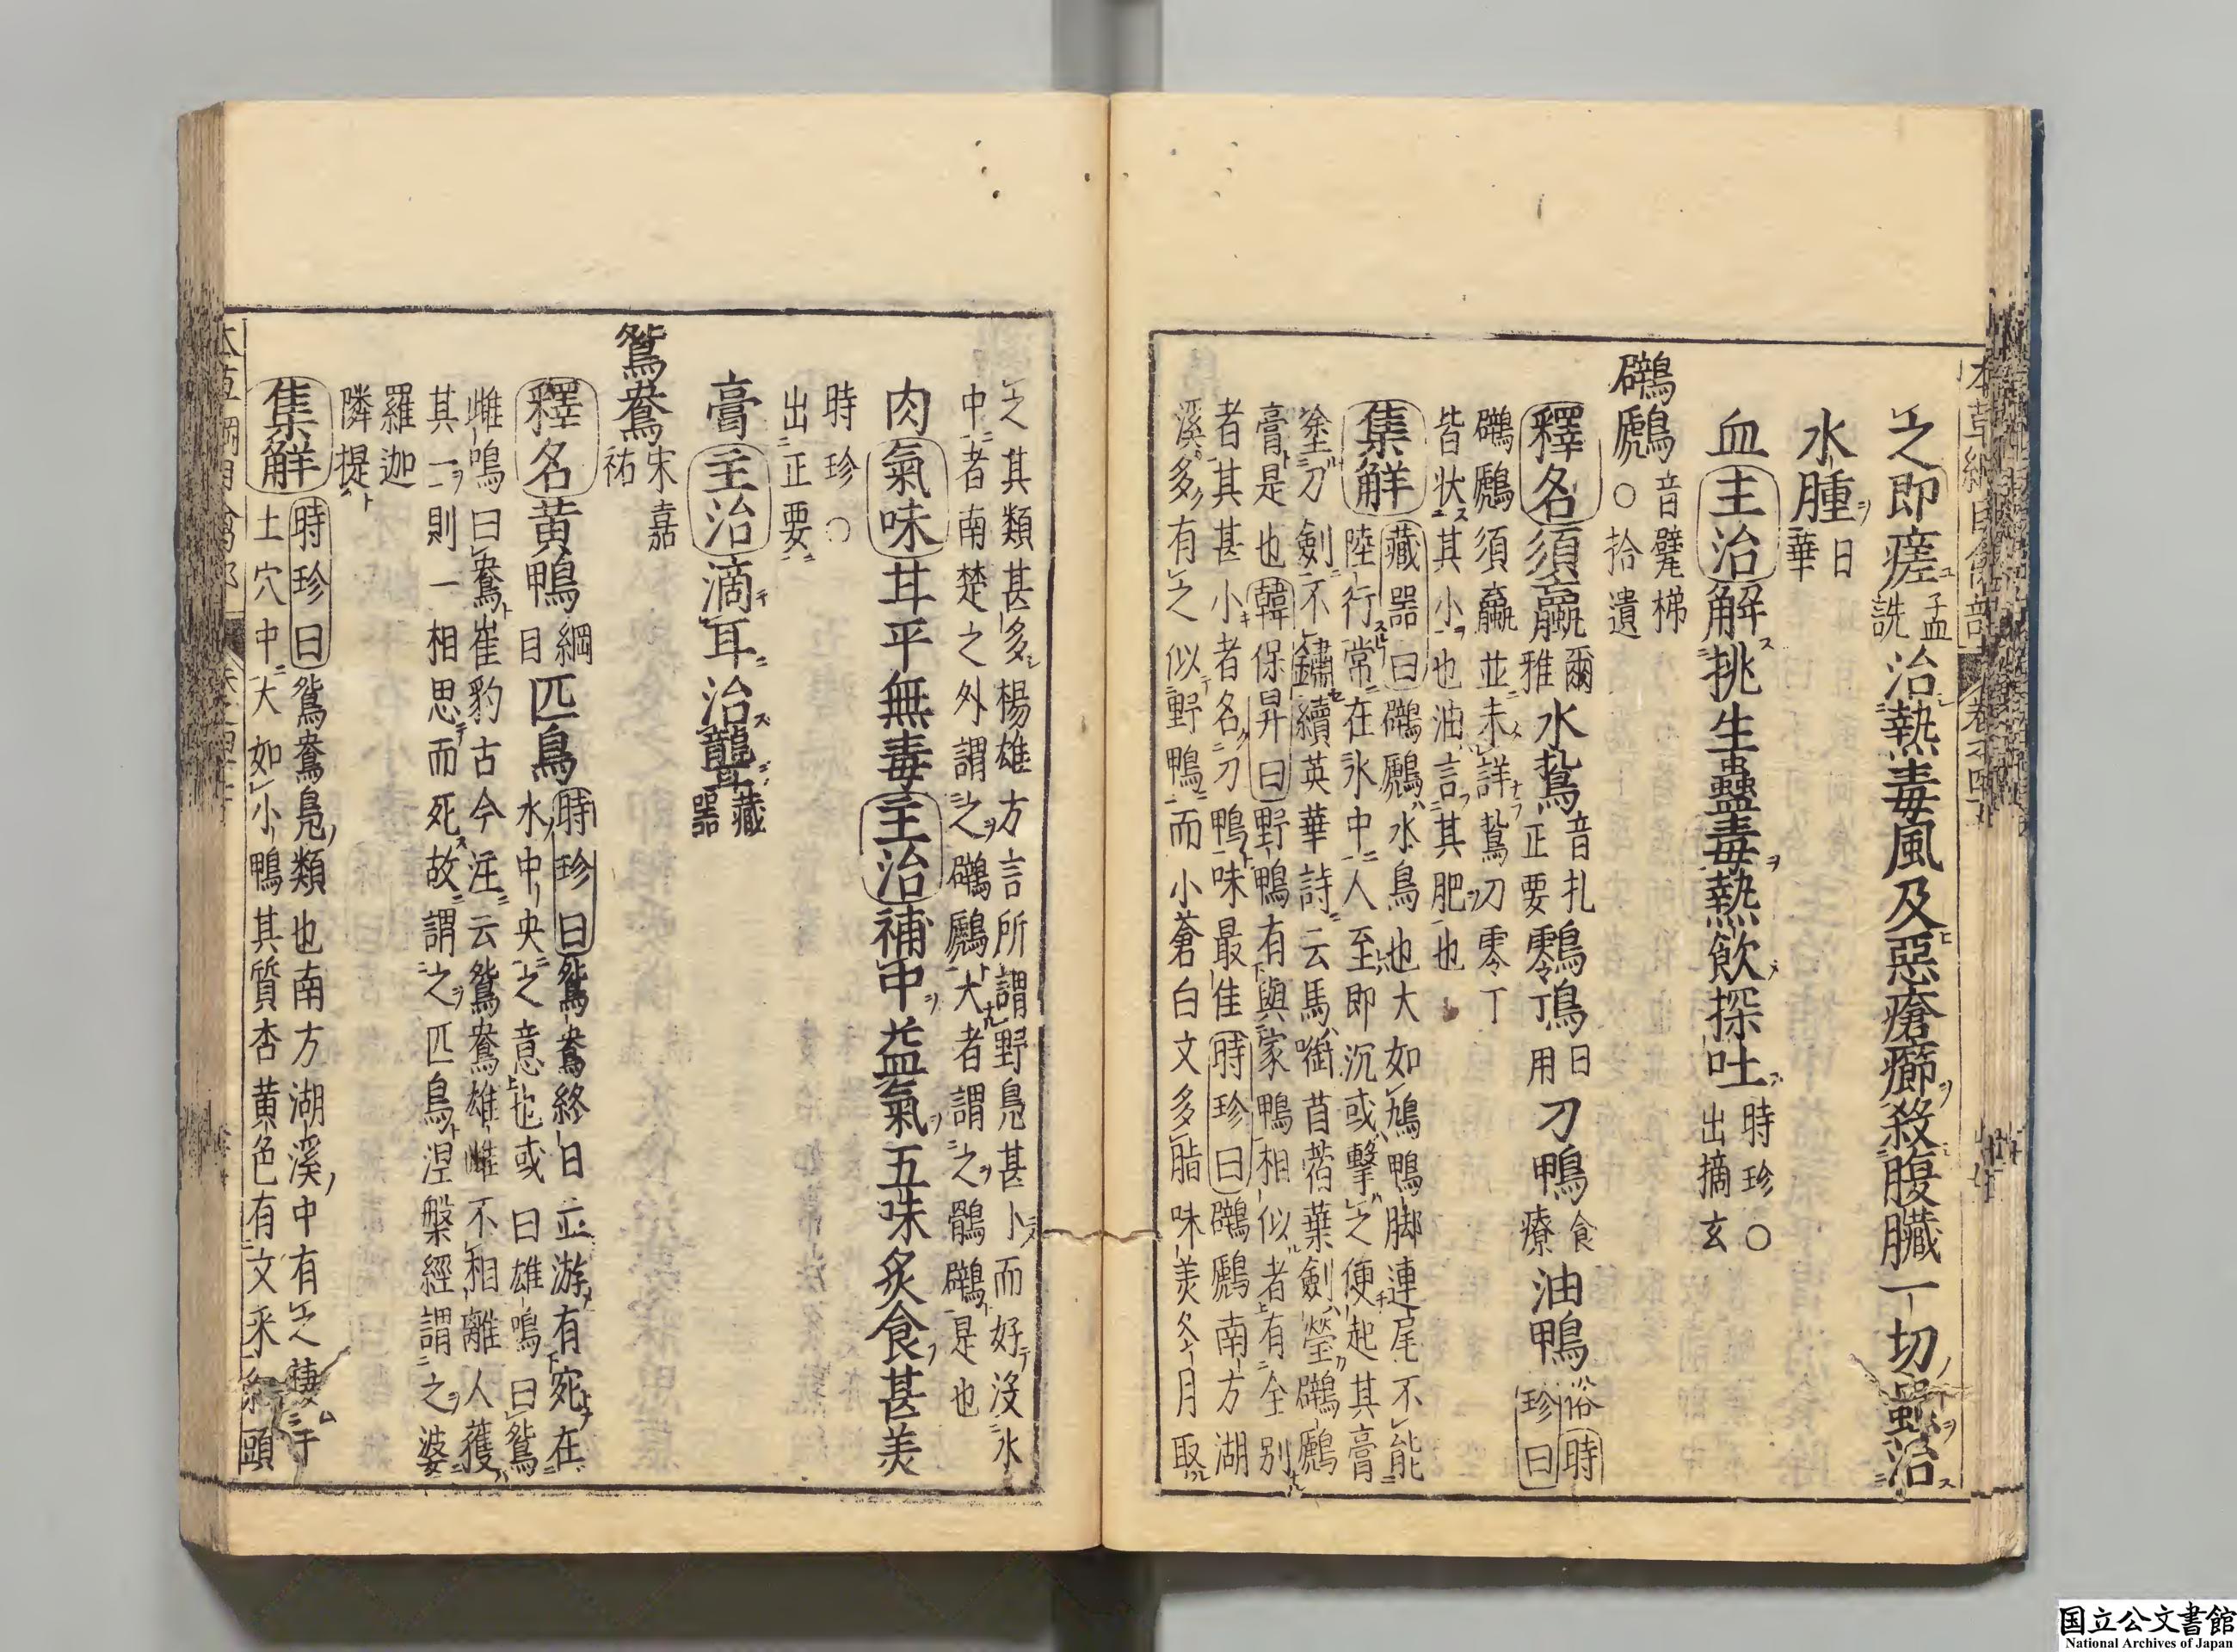 之即瘥孟詵治熱毒風及惡瘡癤殺腹臟一切蟲治
水腫日華
血主治解挑生蠱毒熱飲探吐時珍○出摘玄
鷿鷉音甓梯○拾遺
釋名須鸁爾雅水鴷音扎正要鸋鳭日用刁鴨食療油鴨俗時珍曰
鷿鷉須鸁並未詳鴷刁零丁
皆狀其小也油言其肥也
集解藏器曰鷿鷉水鳥也大如鳩鴨脚連尾不能
陸行常在水中人至即沉或擊之便起其膏
塗刀劍不鏽續英華詩云馬銜苜蓿葉劍瑩鷿鷉
膏是也韓保昇曰野鴨有與家鴨相似者有全別
者其甚小者名刁鴨味最佳時珍曰鷿鷉南方湖
溪多有之似野鴨而小蒼白文多脂味美冬月取
之其類甚多楊雄方言所謂野鳧甚小而好沒水
中者南楚之外謂之鷿鷉大者謂之鶻鷿是也
肉氣味甘平無毒主治補中益氣五味炙食甚美
時珍○
出正要
膏主治滴耳治聾藏器
鴛鴦宋嘉祐
釋名黃鴨綱目匹鳥時珍曰鴛鴦終日並游有宛在
水中央之意也或曰雄鳴曰鴛
雌鳴曰鴦崔豹古今注云鴛鴦雄雌不相離人獲
其一則一相思而死故謂之匹鳥涅槃經謂之婆
羅迦
隣提
集解時珍曰鴛鴦鳧類也南方湖溪中有之棲于
土穴中大如小鴨其質杏黃色有文采 頭
国立公文書館
National Archives of Japan